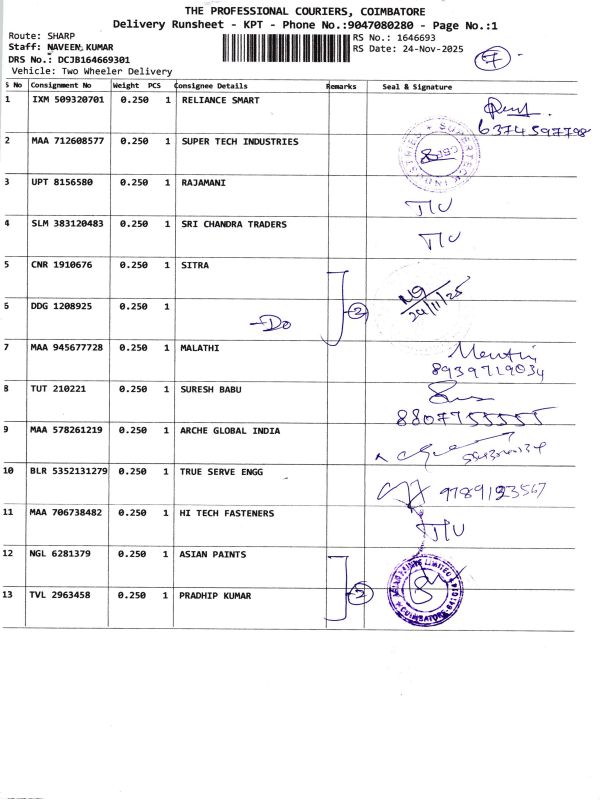 THE PROFESSIONAL COURIERS, COIMBATORE
Delivery Runsheet - KPT - Phone No.:9047080280 - Page No.:1
Route: SHARP
Staff: NAVEEN KUMAR
DRS No.: DCJB164669301
Vehicle: Two Wheeler Delivery
RS No.: 1646693
RS Date: 24-Nov-2025
7
S No Consignment No Weight PCS Consignee Details Remarks Seal & Signature
1 IXM 509320701 0.250 1 RELIANCE SMART
6374597798
2 MAA 712608577 0.250 1 SUPER TECH INDUSTRIES SUPERTECH INDUSTRIES CBE
3 UPT 8156580 0.250 1 RAJAMANI TIU
4 SLM 383120483 0.250 1 SRI CHANDRA TRADERS TIU
5 CNR 1910676 0.250 1 SITRA
2 24/11/25
6 DDG 1208925 0.250 1 -Do
7 MAA 945677728 0.250 1 MALATHI
8939719034
8 TUT 210221 0.250 1 SURESH BABU
8807755555
9 MAA 578261219 0.250 1 ARCHE GLOBAL INDIA
10 BLR 5352131279 0.250 1 TRUE SERVE ENGG 9789193567
11 MAA 706738482 0.250 1 HI TECH FASTENERS TIU
12 NGL 6281379 0.250 1 ASIAN PAINTS
2 ASIAN PAINTS LIMITED COIMBATORE
13 TVL 2963458 0.250 1 PRADHIP KUMAR